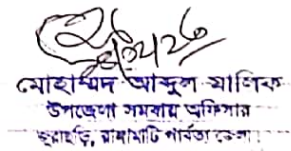 মোহাম্মদ আব্দুল মানিক
উপজেলা সমবায় অফিসার
জুরাছড়ি, রাঙ্গামাটি পার্বত্য জেলা।